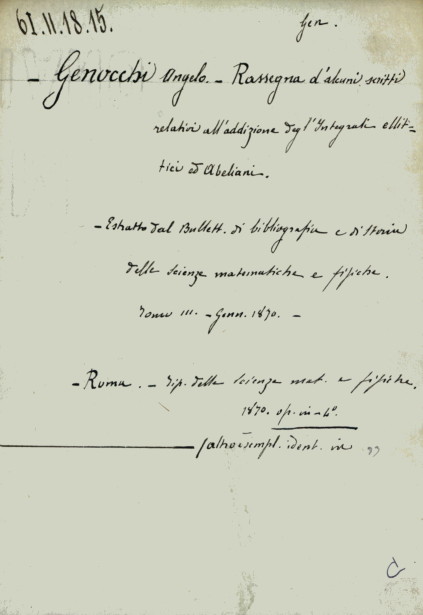 61.11.18.15.
Gen.
– Genocchi Angelo. – Rassegna d'alcuni scritti
relativi all'addizione degl'Integrali ellit=
tici ed Abeliani.
– Estratto dal Bullett. di bibliografia e di Storia
delle scienze matematiche e fisiche.
Tomo III. – Genn. 1870. –
– Roma. – Tip. delle scienze mat. e fisiche.
1870. op. in-4º.
(altro esempl. ident. in
C